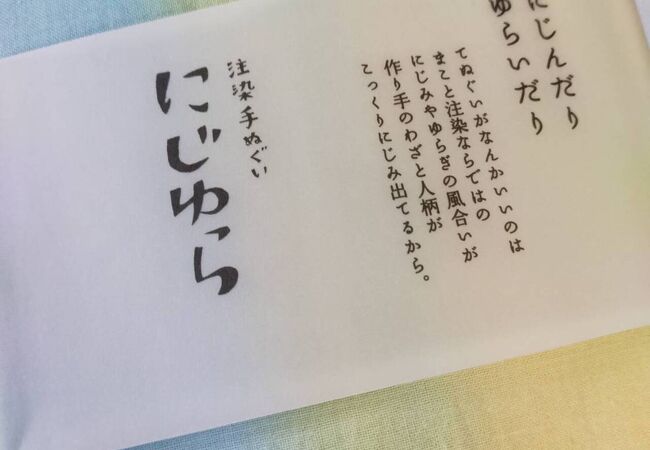 にじんだり
ゆらいだり
てぬぐいがなんかいいのは
まこと注染ならではの
にじみやゆらぎの風合いが
作り手のわざと人柄が
こっくりにじみ出てるから。
注染手ぬぐい
にじゆら